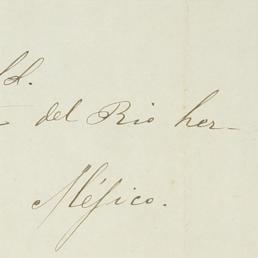 del Rio her-
Méjico.